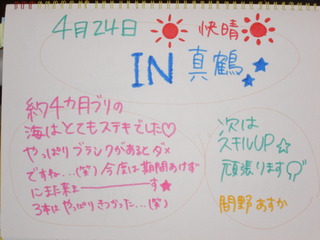 4月24日 快晴
IN 真鶴
約4カ月ブリの
海はとてもステキでした♡
やっぱりブランクがあるとダメ
ですね...(笑) 今度は期間あけず
に また来ま――――す★
3本は やっぱりきつかった...(笑)
次は
スキルUP☆
頑張ります
間野 あすか